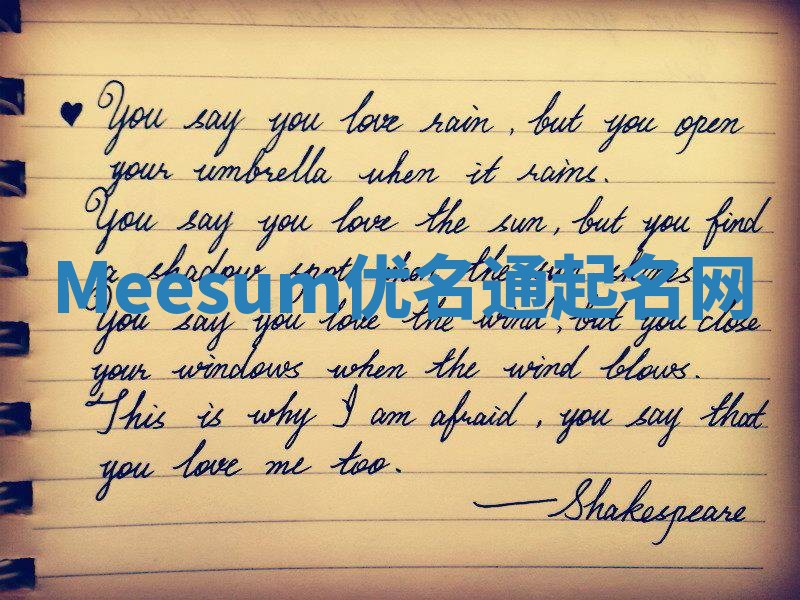 ♥ You say you love rain, but you open
your umbrella when it rains.
You say you love the sun, but you find
a shadow spot when the sun shines.
Meesum优名通起名网
You say you love the wind, but you close
your windows when the wind blows.
This is why I am afraid, you say that
you love me too.
—Shakespeare